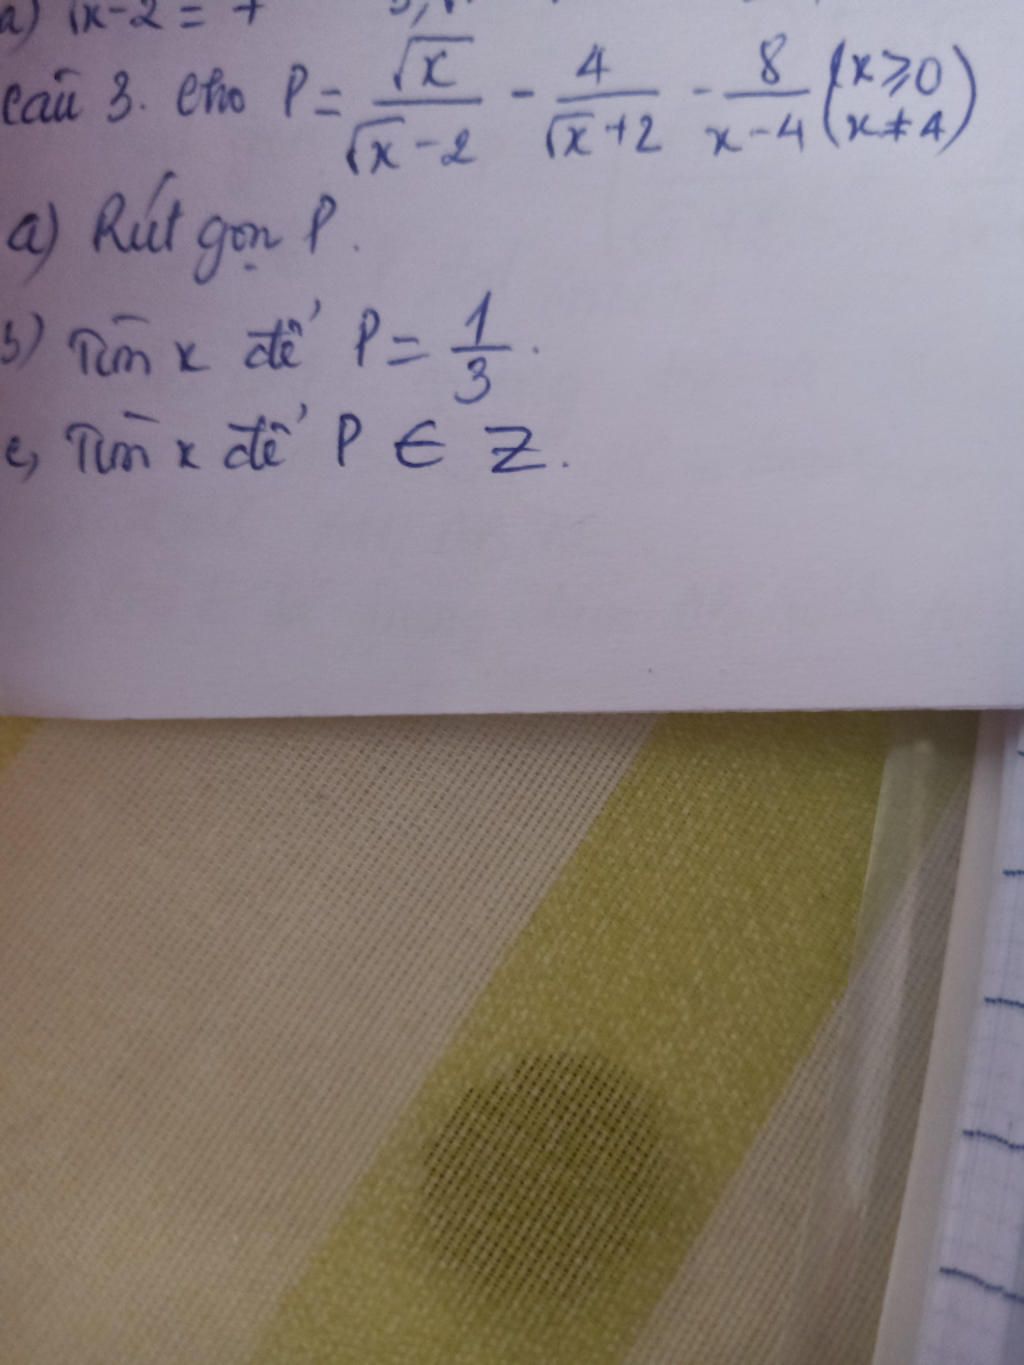 a) √x-2 = 7
Câu 3. Cho P = √x/(√x-2) - 4/(√x+2) - 8/(x-4) (x≥0 x≠4)
a) Rút gọn P.
b) Tìm x để P = 1/3.
c, Tìm x để P ∈ Z.